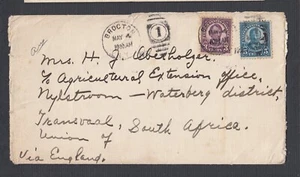 BROCTON
MAY
1
Mrs. H. J. Oberholzer.
To Agricultural Extension Office,
Nylstroom — Waterberg district,
Transvaal, South Africa.
Union of
Via England.